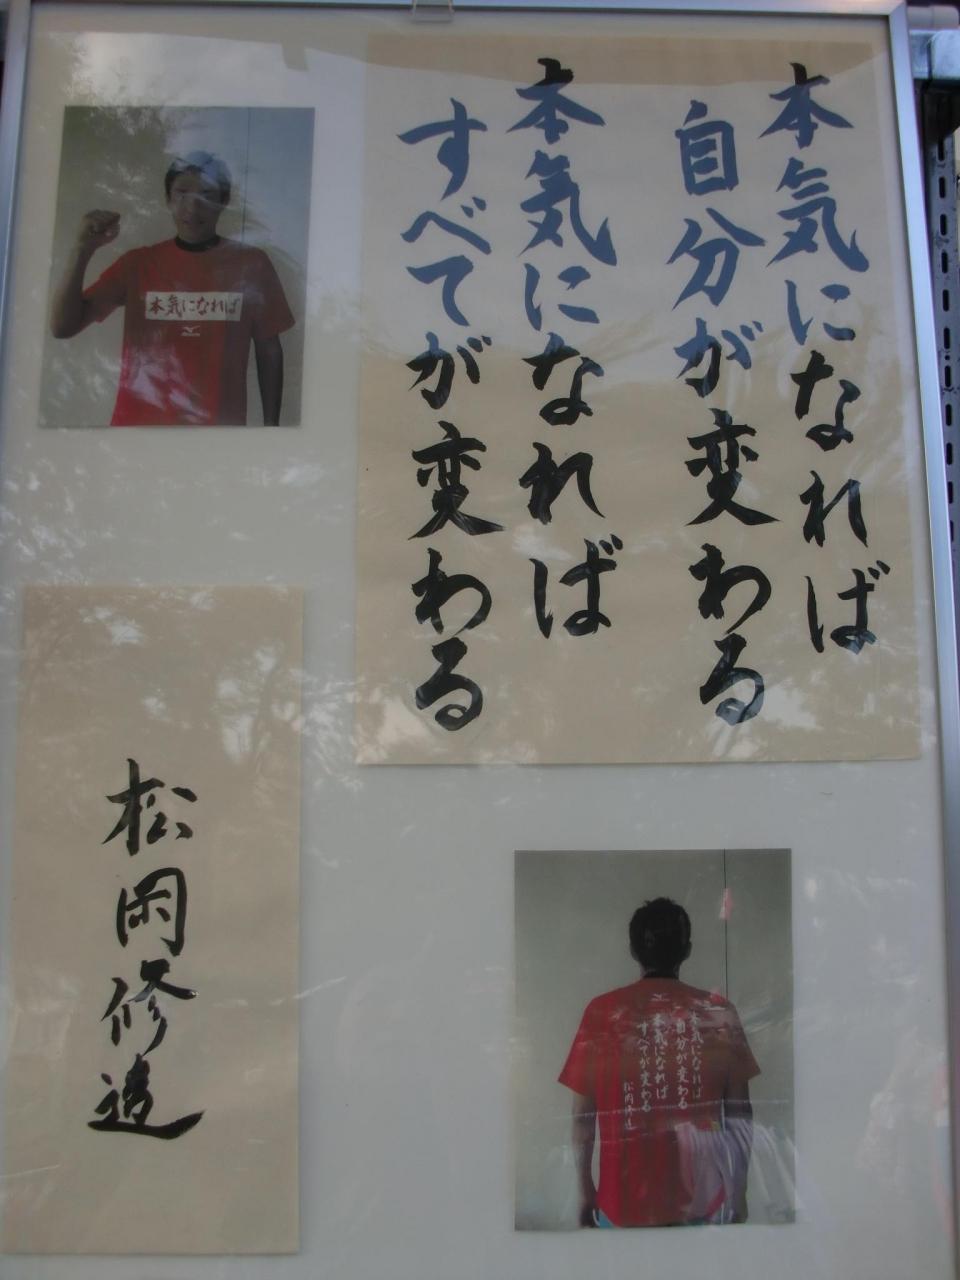 本気になれば
自分が変わる
本気になれば
すべてが変わる
松岡修造
本気になれば
本気になれば
自分が変わる
本気になれば
すべてが変わる
松岡修造